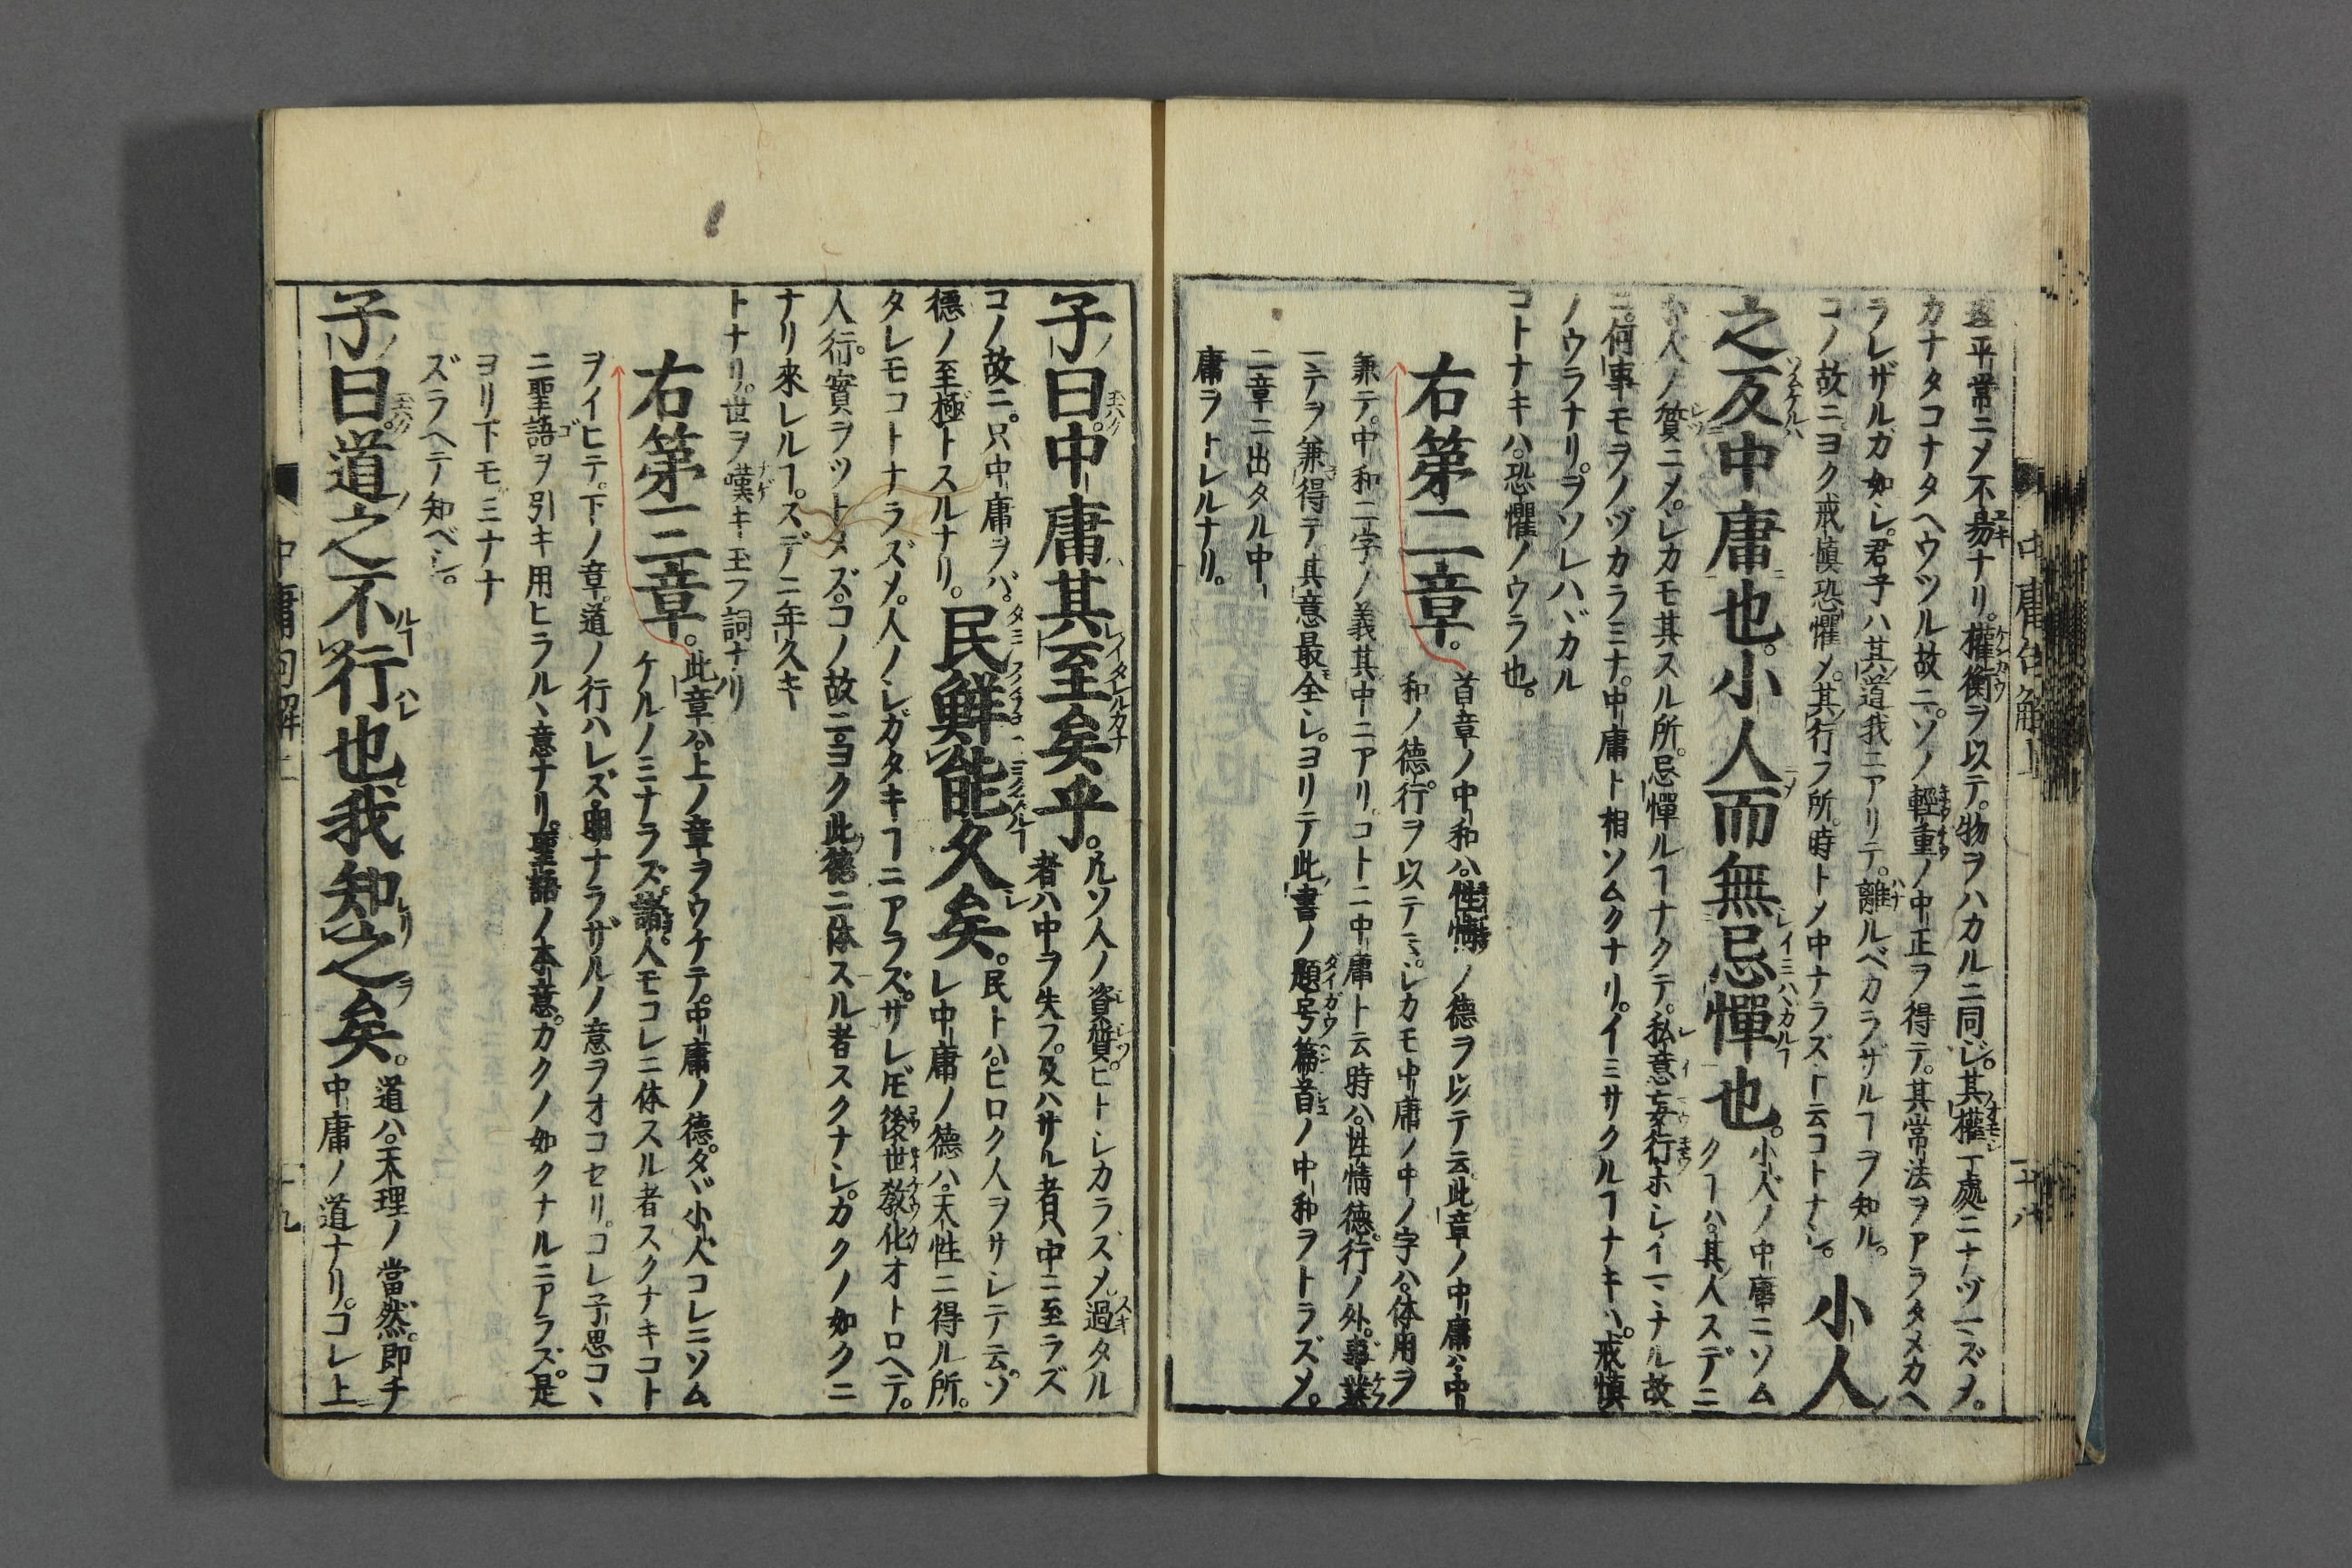 平常ニメ不易ナリ。權衡ヲ以テ。物ヲハカルニ同ジ。其權一處ニナヅマズメ。
カナタコナタヘウツル故ニ。ソノ輕重ノ中正ヲ得テ。其常法ヲアラタメカヘ
ラレザルガ如シ。君子ハ其道我ニアリテ。離ルベカラザルヿヲ知ル。
コノ故ニヨク戒慎恐懼メ。其行フ所。時トメ中ナラズト云コトナシ。小人
之反中庸也。小人而無忌憚也。小人ノ中庸ニソム
クヿハ。其人スデニ
小人ノ質ニメ。シカモ其スル所。忌憚ルヿナクテ。私意妄行ホシイマヽナル故
ニ。何事モヲノヅカラミナ。中庸ト相ソムクナリ。イミサクルヿナキハ。戒慎
ノウラナリ。ヲソレハヾカル
コトナキハ。恐懼ノウラ也。
右第二章。首章ノ中和ハ。性情ノ德ヲ以テ云。此章ノ中庸ハ。中
和ノ德。行ヲ以テ云。シカモ中庸ノ中ノ字ハ。体用ヲ
兼テ。中和二字ノ義其中ニアリ。コトニ中庸ト云時ハ。性情德。行ノ外。事業
マテヲ兼得テ。其意最全シ。ヨリテ此書ノ題号篇首ノ中和ヲトラズメ。
二章ニ出タル中
庸ヲトレルナリ。
子曰。中庸其至矣乎。凡ソ人ノ資質。ヒトシカラスメ。過タル
者ハ中ヲ失フ。及ハサル者ハ中ニ至ラズ
コノ故ニ。只中庸ヲバ。
德ノ至極トスルナリ。民鮮能久矣。民トハ。ヒロク人ヲサシテ云。ソ
レ中庸ノ德ハ。天性ニ得ル所。
タレモコトナラズメ。人ノシガタキヿニアラズ。サレ𪜈後世敎化オトロヘテ。
人行實ヲツトメズ。コノ故ニ。ヨク此德ニ体スル者スクナシ。カクノ如クニ
ナリ來レルヿ。スデニ年久キ
トナリ。世ヲ嘆キ玉フ詞ナリ
右第三章。此章ハ。上ノ章ヲウケテ。中庸ノ德。タヾ小人コレニソム
ケルノミナラズ。諸人モコレニ体スル者スクナキコト
ヲイヒテ。下ノ章。道ノ行ハレズ。明ナラザルノ意ヲオコセリ。コレ子思コヽ
ニ聖語ヲ引キ用ヒラルヽ意ナリ。聖語ノ本意。カクノ如クナルニアラズ。是
ヨリ下モミナナ
ズラヘテ知ベシ。
子曰。道之不行也。我知之矣。道ハ。天理ノ當然。即チ
中庸ノ道ナリ。コレ上
中庸句解
十九